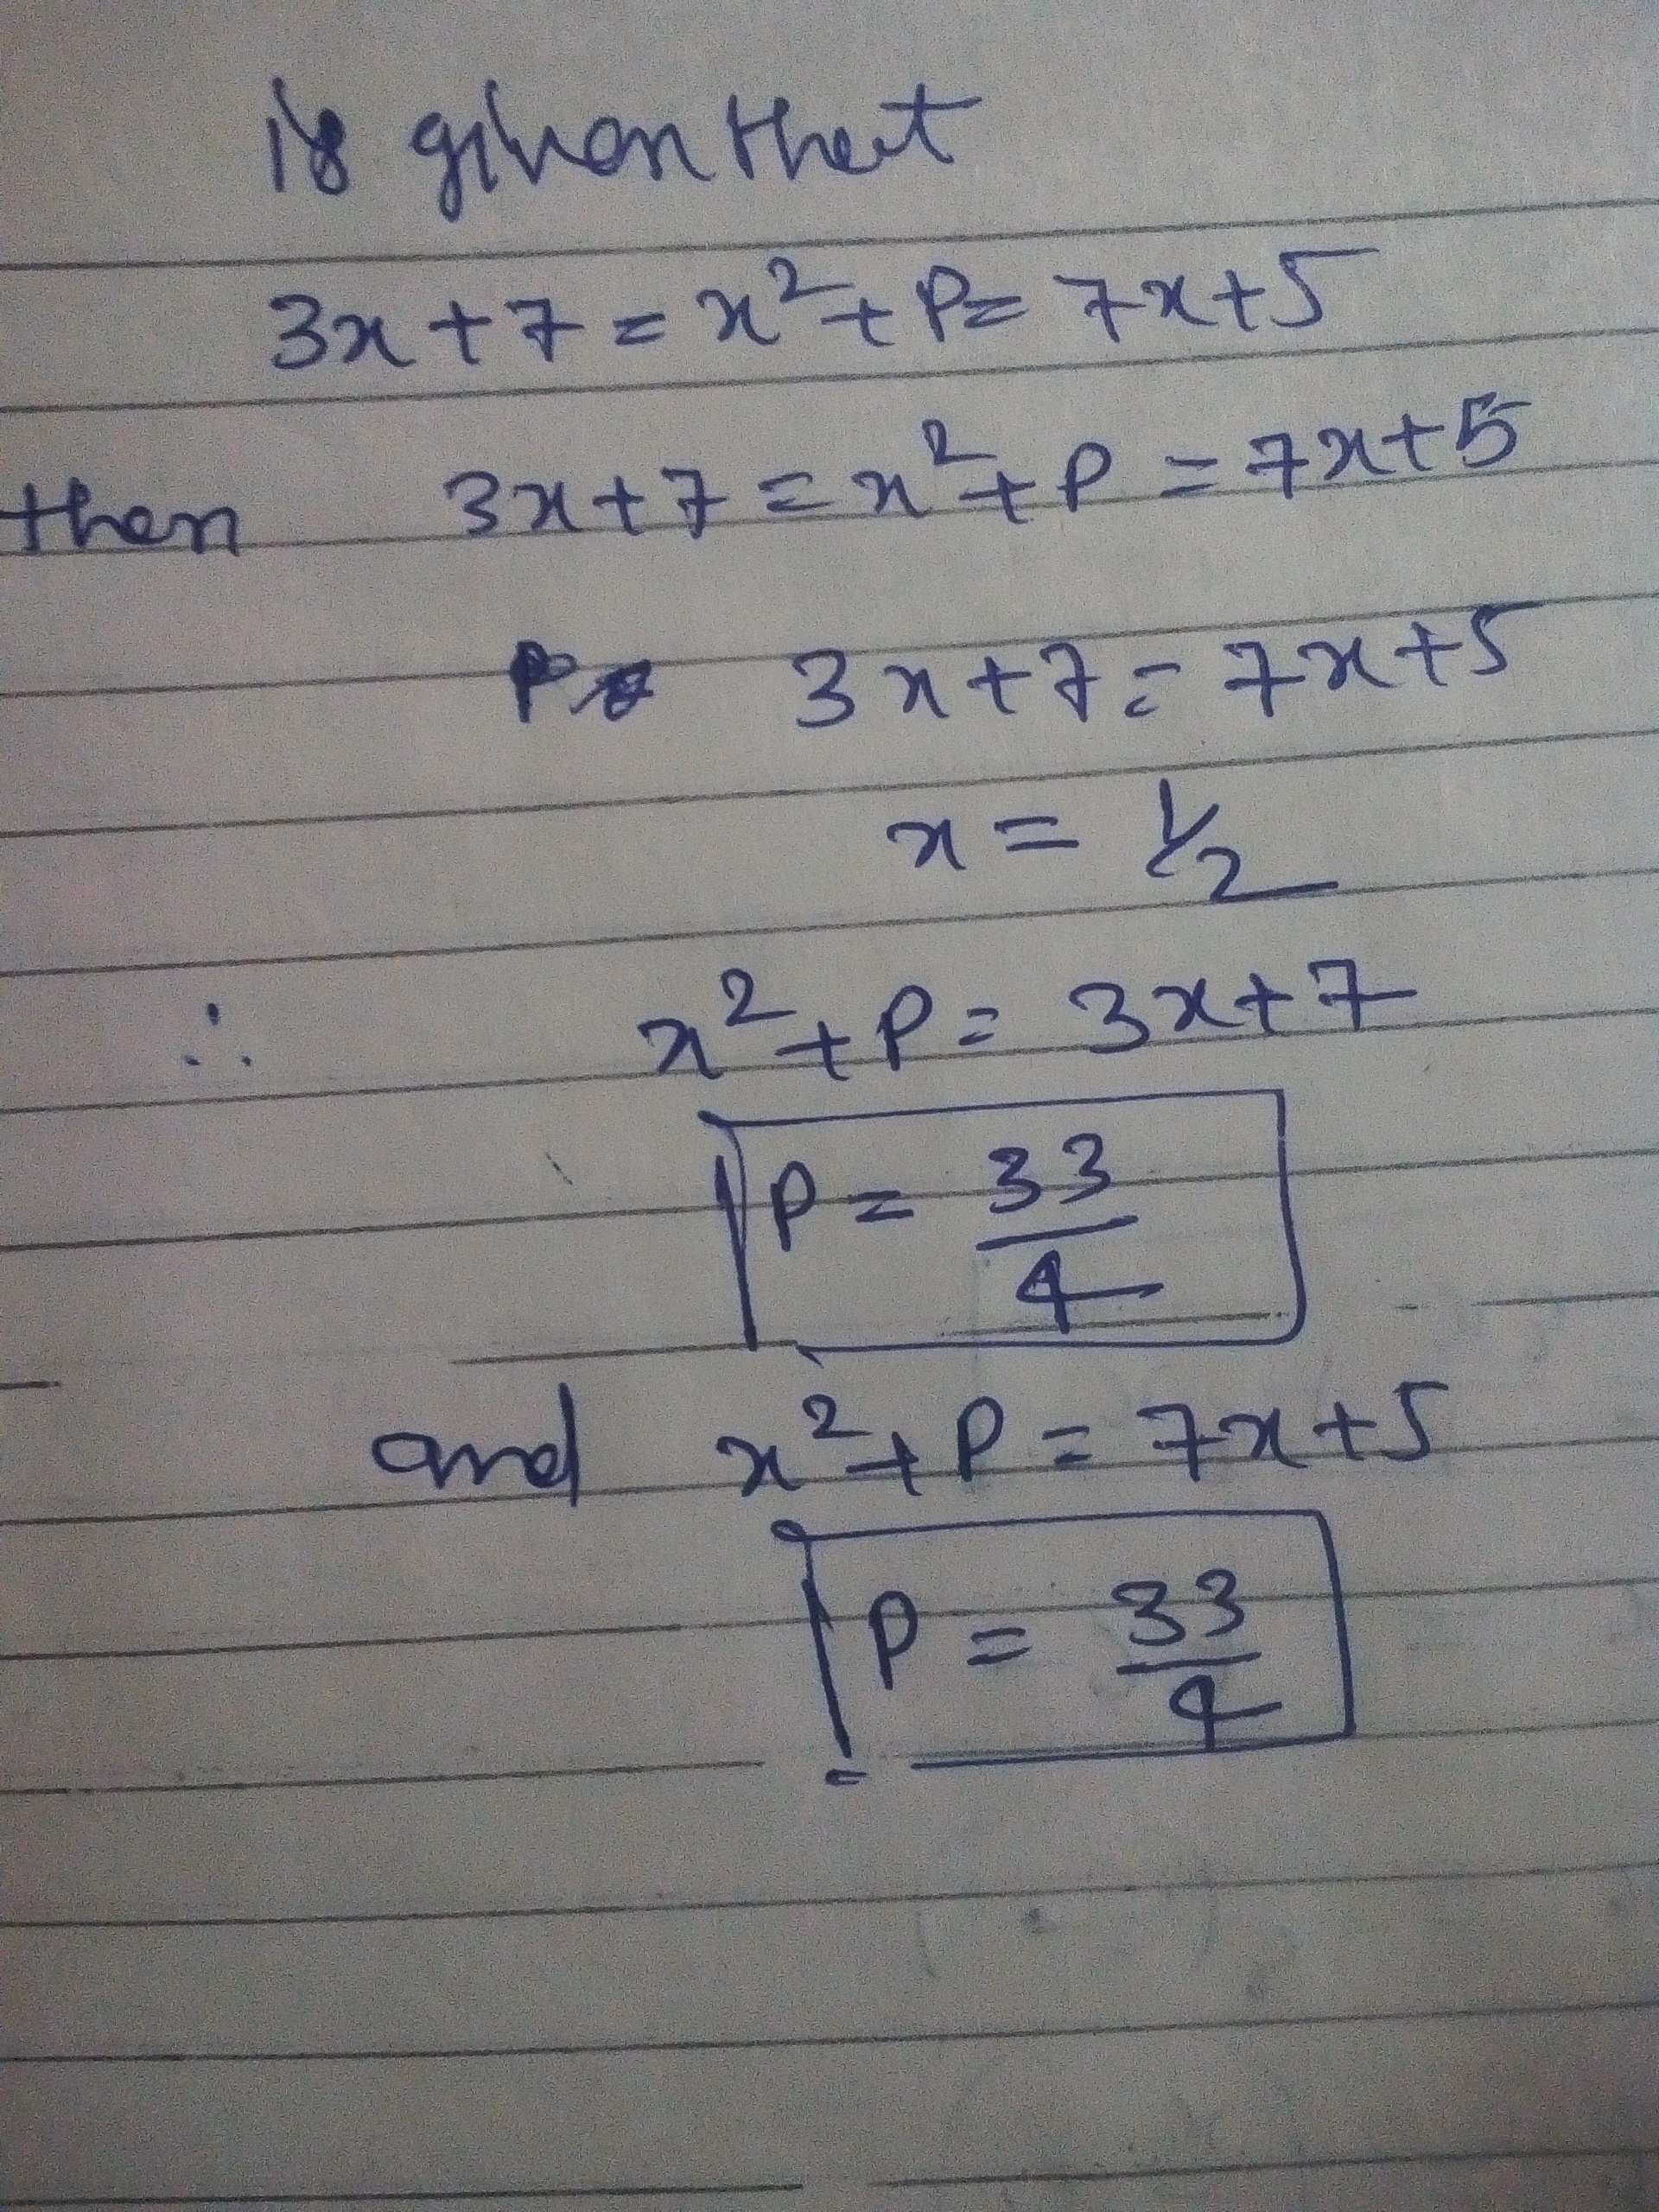 is given that
3x + 7 = x² + P = 7x + 5
then 3x + 7 = x² + P = 7x + 5
3x + 7 = 7x + 5
x = 1/2
∴ x² + P = 3x + 7
P = 33/4
and x² + P = 7x + 5
P = 33/4